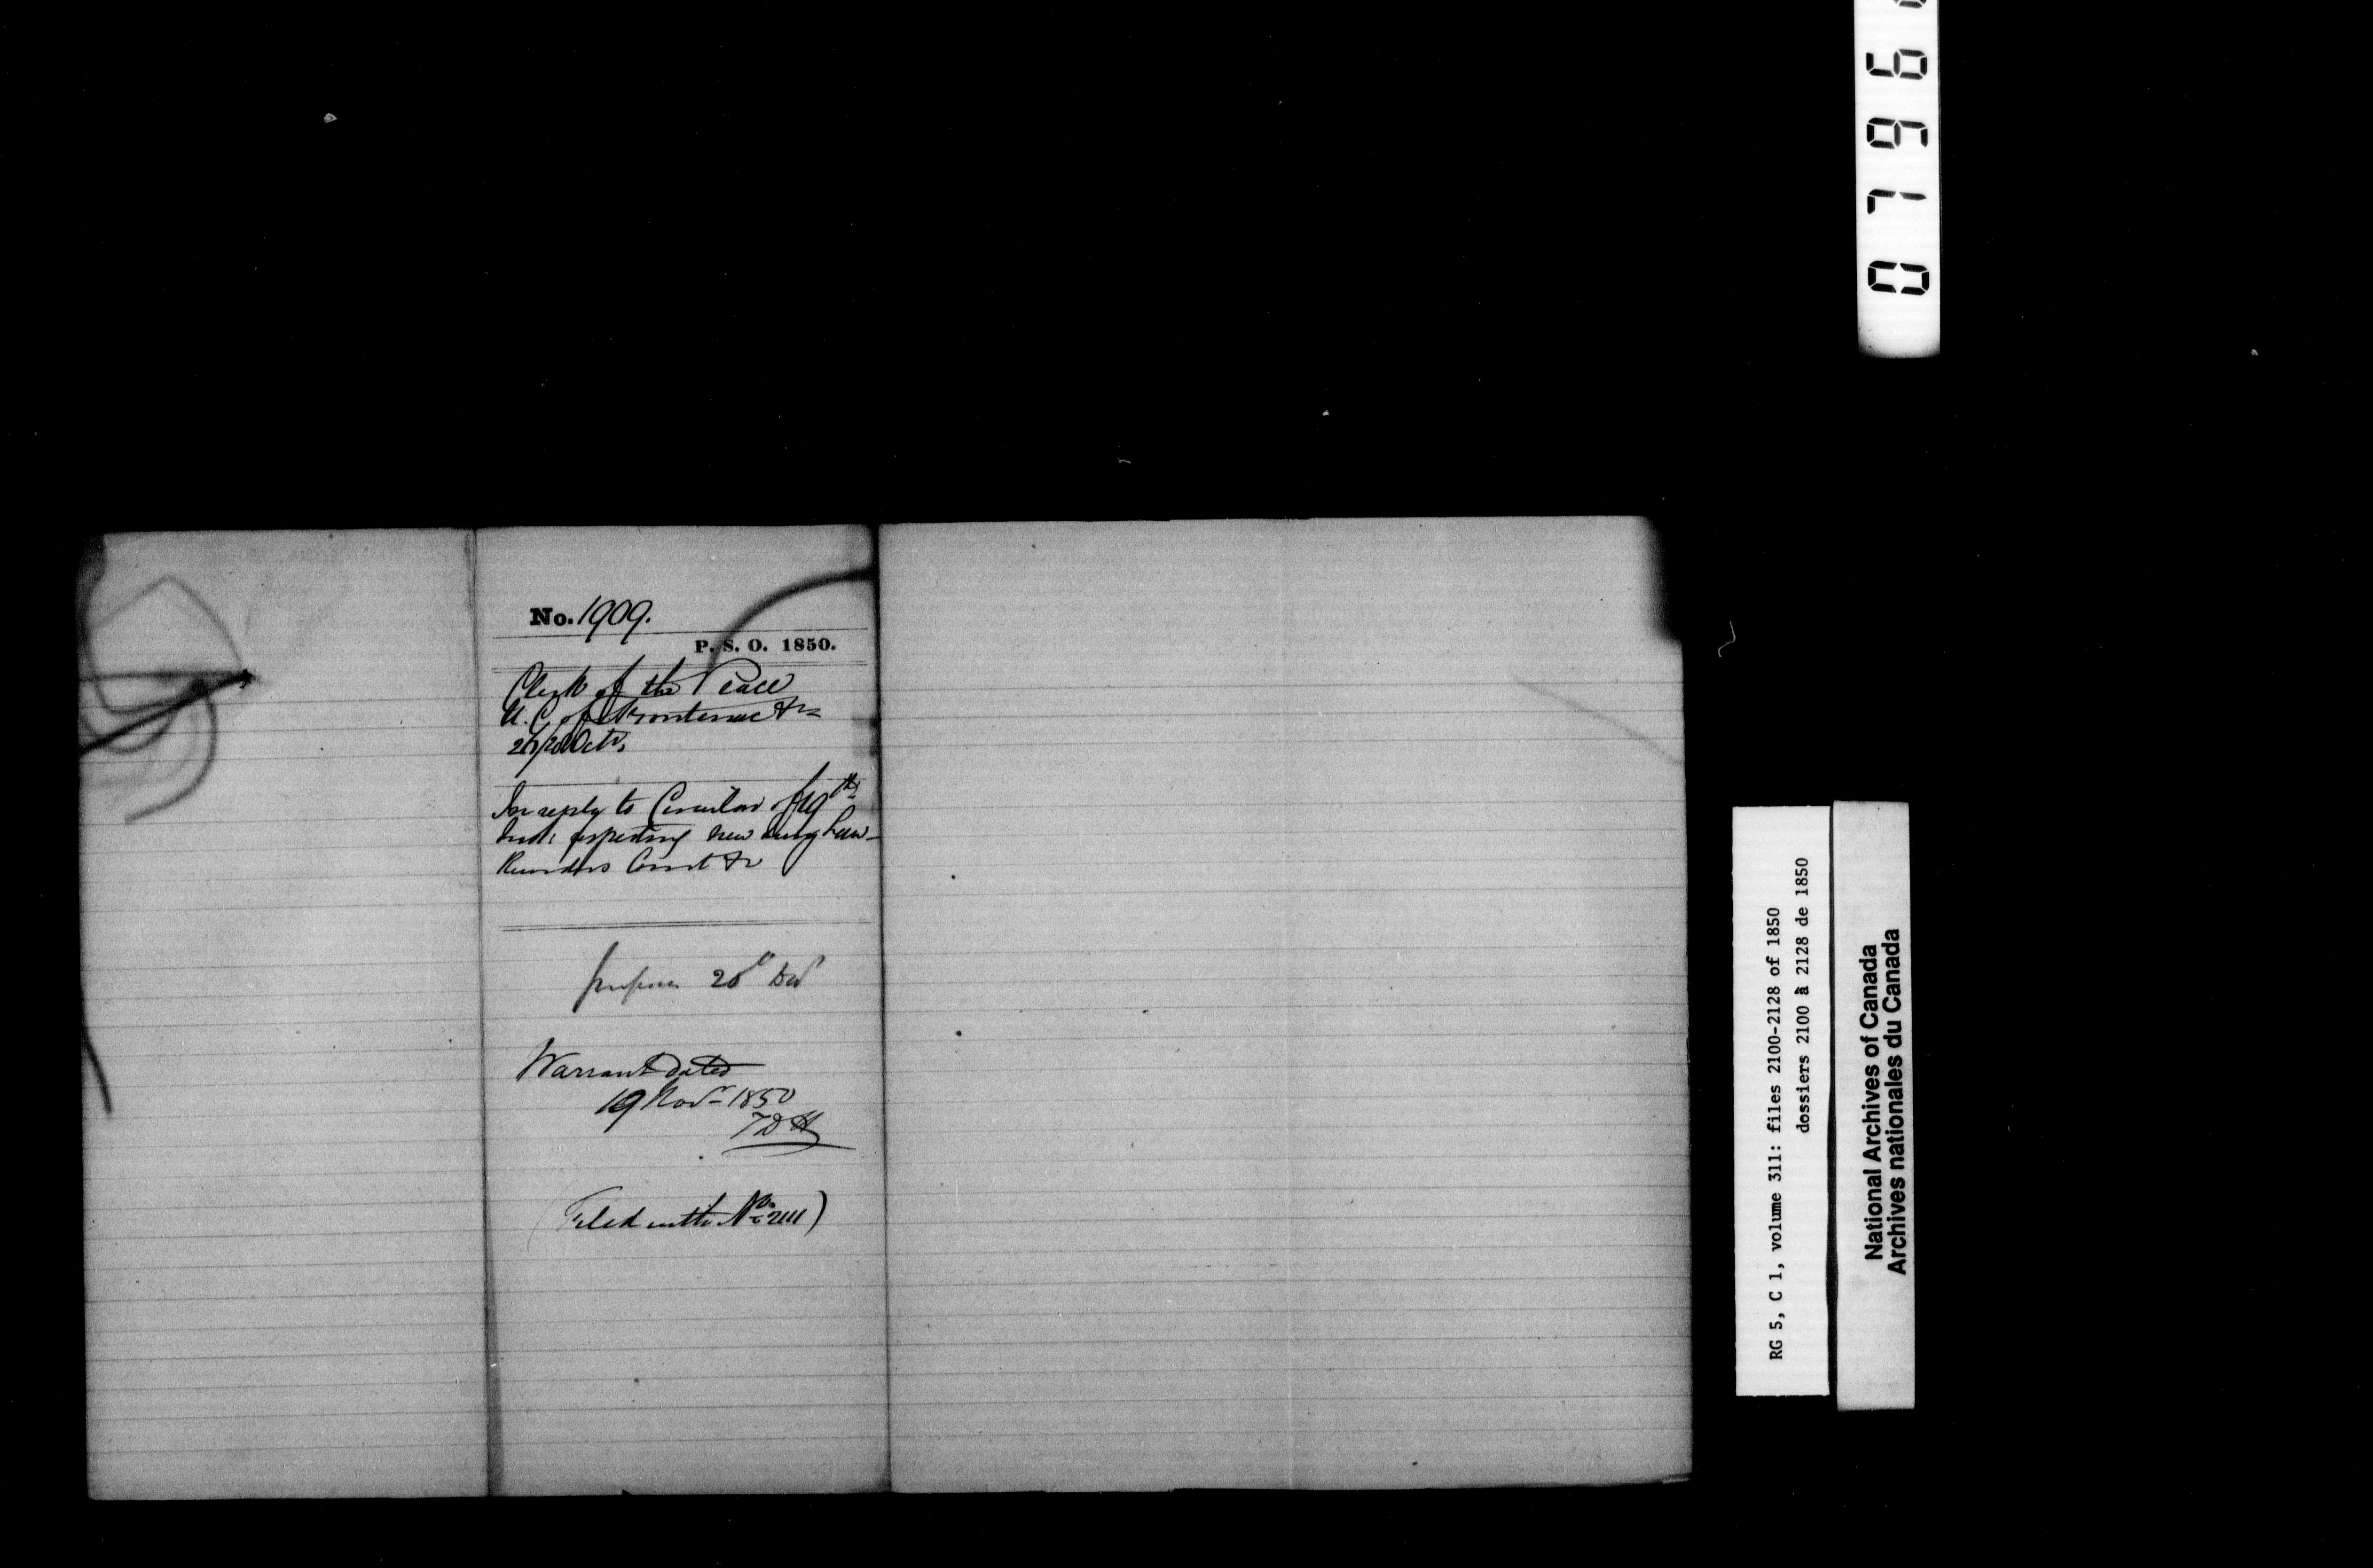 No. 1909.
P. S. O. 1850.
Clerk of the Peace
U. C. of Frontenac &c
Octr.
In reply to Circular of 19th
Inst: respecting new Jury Law
Recorders Court &c
20th
Warrant dated
19 Novr 1850
TDH
(Filed with No. 2111)
0796
RG 5, C 1, volume 311: files 2100-2128 of 1850
dossiers 2100 à 2128 de 1850
National Archives of Canada
Archives nationales du Canada